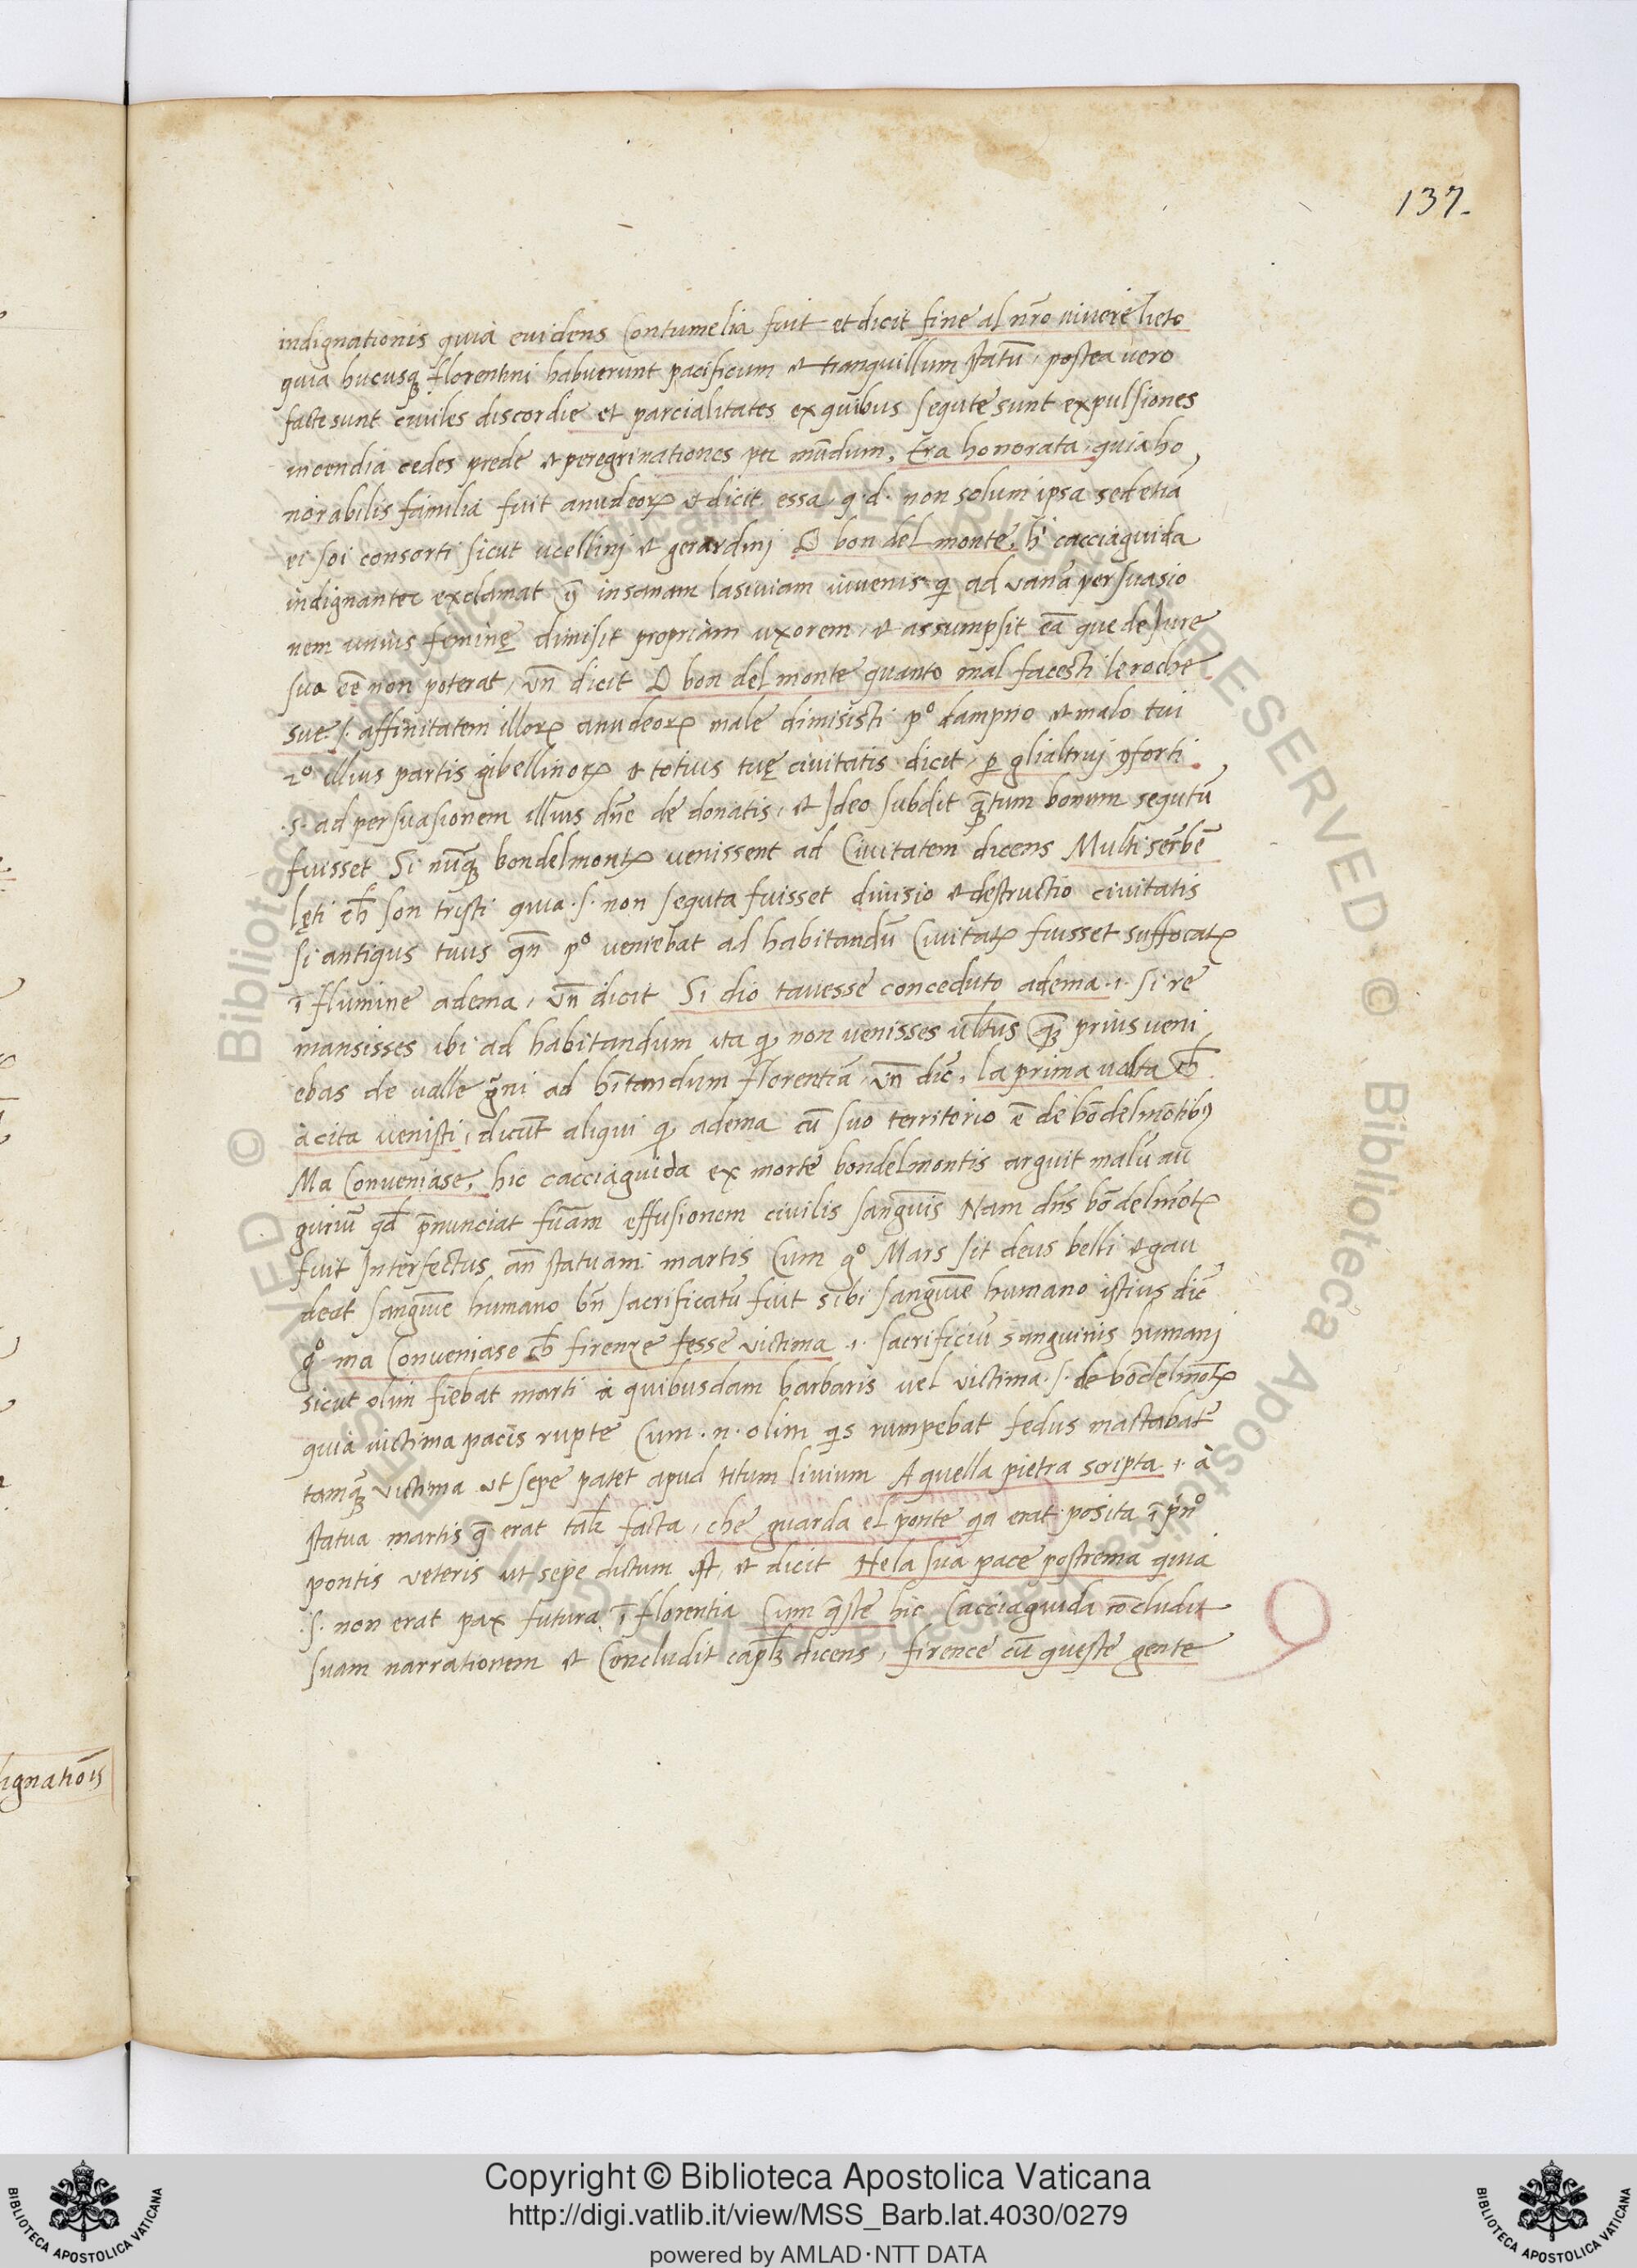 137.
indignationis quia euidens Contumelia fuit et dicit fine al nr̄o uiuere lieto
quia hucusqꝫ florentini habuerunt pacificum et tranquillum statū, postea uero
facte sunt ciuiles discordie et parcialitates ex quibus segute sunt expulsiones
incendia cedes prede et peregrinationes per mūdum, Era honorata, quia ho
norabilis familia fuit amideoꝝ et dicit essa, q. d. non solum ipsa sed etiā
ei soi consorti sicut ucellini et gerardinj O bon del monte, h̄ cacciaguida
indignanter exclamat in insanam lasiuiam iuuenis ꝗ ad vanā persuasio
nem unius feminę dimisit propriam uxorem, et assumpsit eā que de Jure
sua eē non poterat, vn̄ dicit O bon del monte quanto mal facesti le noche
sue .s. affinitatem illoꝝ amideoꝝ male dimisisti pº dampno et malo tui
2º illius partis gibellinoꝝ et totius tuę ciuitatis dicit, ꝑ glialtruj ꝯforti
.s. ad persuasionem illius dn̄e de donatis, et Ideo subdit qꝫtum bonum segutū
fuisset Si nūqꝫ bondelmontꝝ uenissent ad Ciuitatem dicens Multi serbē
lęti ch̄ son tristi quia .s. non seguta fuisset diuisio et destructio ciuitatis
si antiqus tuus qn̄ pº ueniebat ad habitandū Ciuitatꝝ fuisset suffocatꝝ
ī flumine adema, vn̄ dicit Si dio tauesse conceduto adema .i. si re
mansisses ibi ad habitandum ita ꝙ non uenisses ulteius qꝫ prius ueni
ebas de ualle gr̄ni ad hītandum florentiā, vn̄ dic̄, la prima uolta ch̄
a cita uenisti, dicūt aliqui ꝙ adema cū suo territorio ē de bōdelmōtibꝰ
Ma Conueniase, hic cacciaguida ex morte bondelmontis arguit malū au
guriū qd̄ p̄nunciat fūam effusionem ciuilis sanguīs Nam dn̄s bōdelmōtꝝ
fuit Interfectus an̄ statuam martis Cum gº Mars sit deus belli et gau
deat sanguīe humano bn̄ sacrificatū fuit sibi sanguīe humano istius dic̄
gº ma Conueniase ch̄ firenze fesse victima .i. sacrificiū sanguinis humanj
sicut olim fiebat marti à quibusdam barbaris uel victima .s. de bōdelmōtꝝ
quia uictima pacis rupte Cum .n. olim qis rumpebat fedus mactabatᷣ
tamqꝫ victima ut sepe patet apud titum liuium A quella pietra scripta .i. à
statua martis q̄ erat talr̄ facta, che guarda el ponte qia erat posita ī pn̄º
pontis veteris ut sepe dictum st̄, et dicit Ne la sua pace postrema quia
.s. non erat pax futura ī florentia Cum q̄ste hic Cacciaguida cōcludit
suam narrationem et Concludit capl̄ꝫ dicens, firence cū queste gente
ignatiōis
Copyright © Biblioteca Apostolica Vaticana
http://digi.vatlib.it/view/MSS_Barb.lat.4030/0279
powered by AMLAD·NTT DATA
BIBLIOTECA APOSTOLICA VATICANA
BIBLIOTECA APOSTOLICA VATICANA